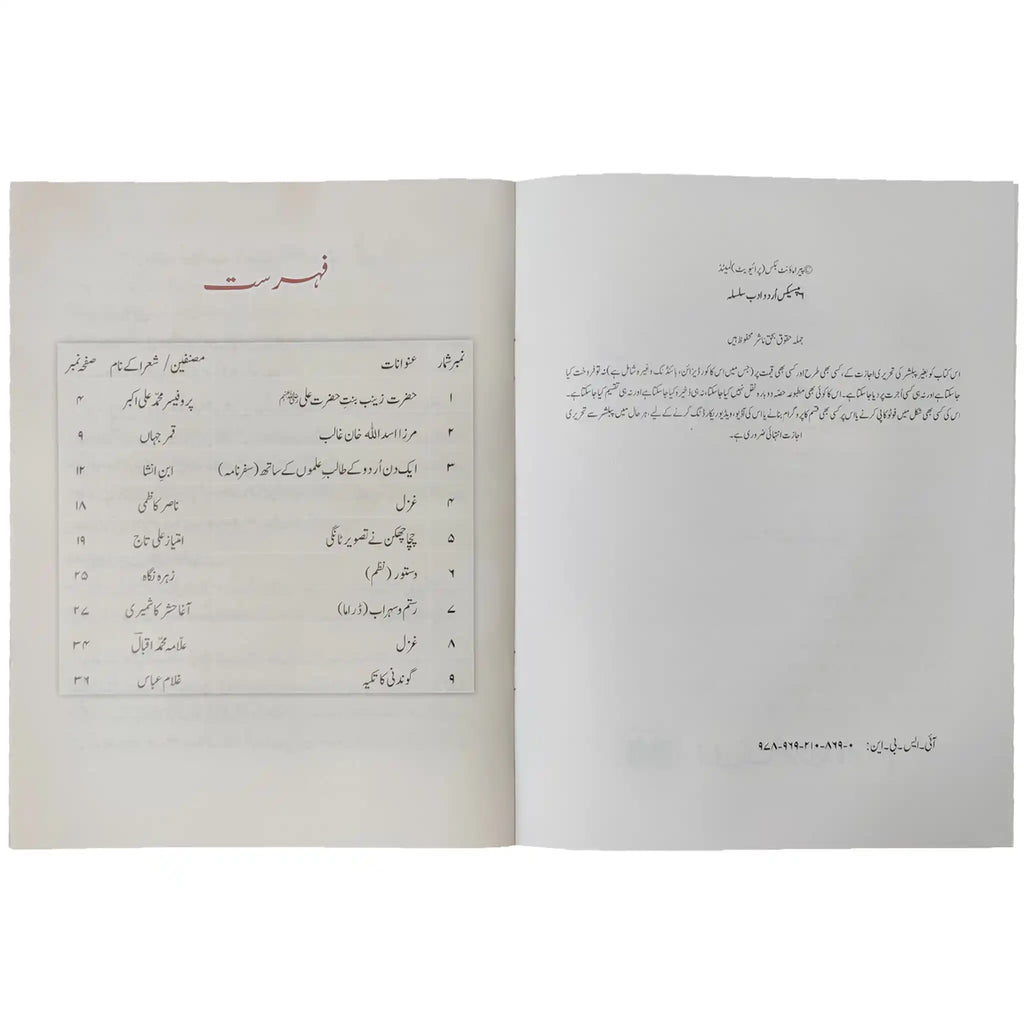 © پیراماؤنٹ بکس (پرائیویٹ) لمیٹڈ
اُردو ادب سلسلہ
جملہ حقوق بحق ناشر محفوظ ہیں
اس کتاب کو بغیر پبلشر کی تحریری اجازت کے، کسی بھی طرح اور کسی بھی قیمت پر (جس میں اس کا کور ڈیزائن، بائنڈنگ وغیرہ شامل ہے) نہ تو فروخت کیا
جاسکتا ہے اور نہ ہی کسی اُجرت پر دیا جاسکتا ہے۔ اس کا کوئی بھی مطبوعہ حصّہ دوبارہ نقل نہیں کیا جاسکتا، نہ ہی ذخیرہ کیا جاسکتا ہے اور نہ ہی تقسیم کیا جاسکتا ہے۔
اس کی کسی بھی شکل میں فوٹو کاپی کرنے یا اس پر کسی بھی قسم کا پروگرام بنانے یا اس کی آڈیو، ویڈیو ریکارڈنگ کرنے کے لیے، ہر حال میں پبلشر سے تحریری
اجازت انتہائی ضروری ہے۔
آئی۔ایس۔بی۔این: ۰-۸۶۹-۲۱۰-۹۶۹-۹۷۸
فہرست
نمبر شمار عنوانات مصنفین / شعرا کے نام صفحہ نمبر
۱ حضرت زینب بنتِ حضرت علی پروفیسر محمد علی اکبر ۴
۲ مرزا اسد اللہ خان غالب قمر جہاں ۹
۳ ایک دن اُردو کے طالبِ علموں کے ساتھ (سفرنامہ) ابنِ انشا ۱۲
۴ غزل ناصر کاظمی ۱۸
۵ چچا چھکن نے تصویر ٹانگی امتیاز علی تاج ۱۹
۶ دستور (نظم) زہرہ نگاہ ۲۵
۷ رستم و سہراب (ڈراما) آغا حشر کاشمیری ۲۷
۸ غزل علّامہ محمّد اقبالؔ ۳۴
۹ گوندنی کا تکیہ غلام عباس ۳۶